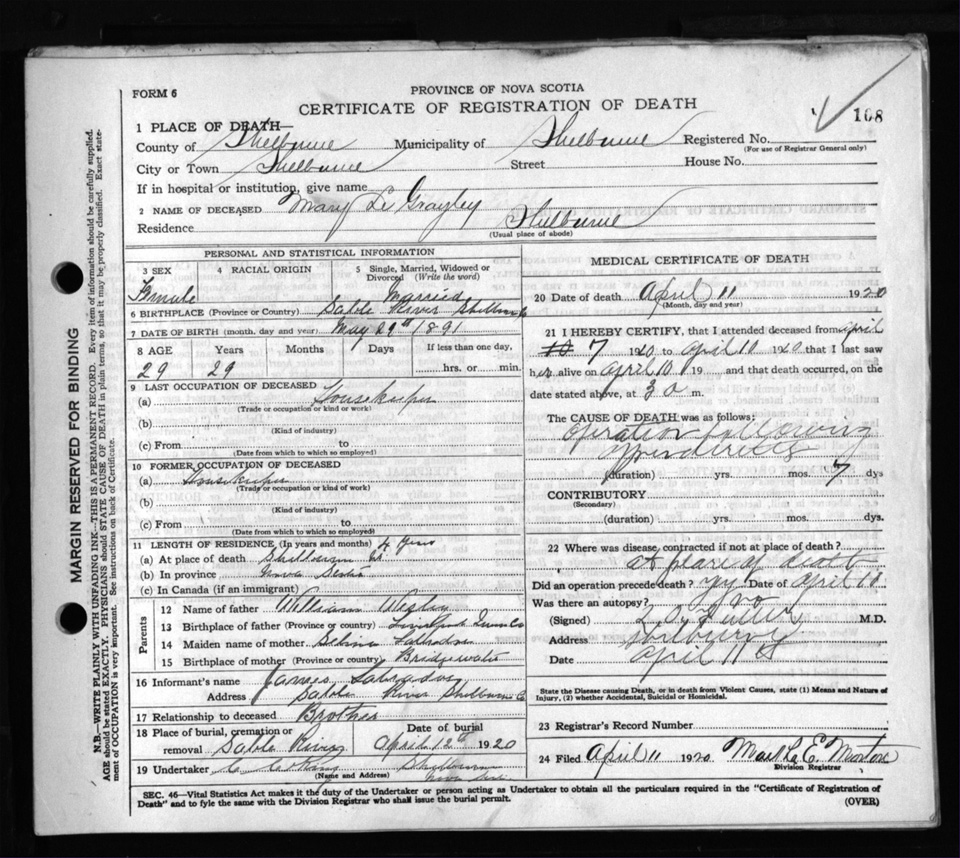 FORM 6
PROVINCE OF NOVA SCOTIA
CERTIFICATE OF REGISTRATION OF DEATH
108
1 PLACE OF DEATH—
County of Shelburne Municipality of Shelburne Registered No.
(For use of Registrar General only)
City or Town Shelburne Street House No.
If in hospital or institution, give name
2 NAME OF DECEASED Mary Le Grayley
Residence Shelburne
(Usual place of abode)
PERSONAL AND STATISTICAL INFORMATION
3 SEX 4 RACIAL ORIGIN 5 Single, Married, Widowed or Divorced (Write the word)
Female Married
6 BIRTHPLACE (Province or Country) Sable River Shelburne Co
7 DATE OF BIRTH (month, day and year) May 29th 1891
8 AGE Years Months Days If less than one day,
29 29 hrs. or min.
9 LAST OCCUPATION OF DECEASED
(a) Housekeeper
(Trade or occupation or kind or work)
(b)
(Kind of industry)
(c) From to
(Date from which to which so employed)
10 FORMER OCCUPATION OF DECEASED
(a) Housekeeper
(Trade or occupation or kind of work)
(b)
(Kind of industry)
(c) From to
(Date from which to which so employed)
11 LENGTH OF RESIDENCE (In years and months) 4 years
(a) At place of death Shelburne
(b) In province Nova Scotia
(c) In Canada (if an immigrant)
Parents
12 Name of father William
13 Birthplace of father (Province or country) Liverpool Queens Co
14 Maiden name of mother
15 Birthplace of mother (Province or country) Bridgewater
16 Informant's name James
Address Sable River Shelburne Co
17 Relationship to deceased Brother
18 Place of burial, cremation or removal Sable River Date of burial April 12th 1920
19 Undertaker Shelburne
(Name and Address) Nova Scotia
MEDICAL CERTIFICATE OF DEATH
20 Date of death April 11 1920
(Month, day and year)
21 I HEREBY CERTIFY, that I attended deceased from April
10 7 1920 to April 10 1920 that I last saw
her alive on April 10 19 and that death occurred, on the
date stated above, at 30 m.
The CAUSE OF DEATH was as follows:
Operation following
(duration) yrs. mos. 7 dys
CONTRIBUTORY
(Secondary)
(duration) yrs. mos. dys.
22 Where was disease, contracted if not at place of death?
at place of death
Did an operation precede death? Yes Date of April 10
Was there an autopsy? No
(Signed) M.D.
Address Shelburne
Date April 11
State the Disease causing Death, or in death from Violent Causes, state (1) Means and Nature of
Injury, (2) whether Accidental, Suicidal or Homicidal.
23 Registrar's Record Number
24 Filed April 11 1920
Division Registrar
SEC. 46—Vital Statistics Act makes it the duty of the Undertaker or person acting as Undertaker to obtain all the particulars required in the "Certificate of Registration of
Death" and to fyle the same with the Division Registrar who shall issue the burial permit.
(OVER)
MARGIN RESERVED FOR BINDING
N.B.—WRITE PLAINLY WITH UNFADING INK—THIS IS A PERMANENT RECORD. Every item of information should be carefully supplied.
AGE should be stated EXACTLY. PHYSICIANS should STATE CAUSE OF DEATH in plain terms, so that it may be properly classified. Exact state-
ment of OCCUPATION is very important. See instructions on back of Certificate.